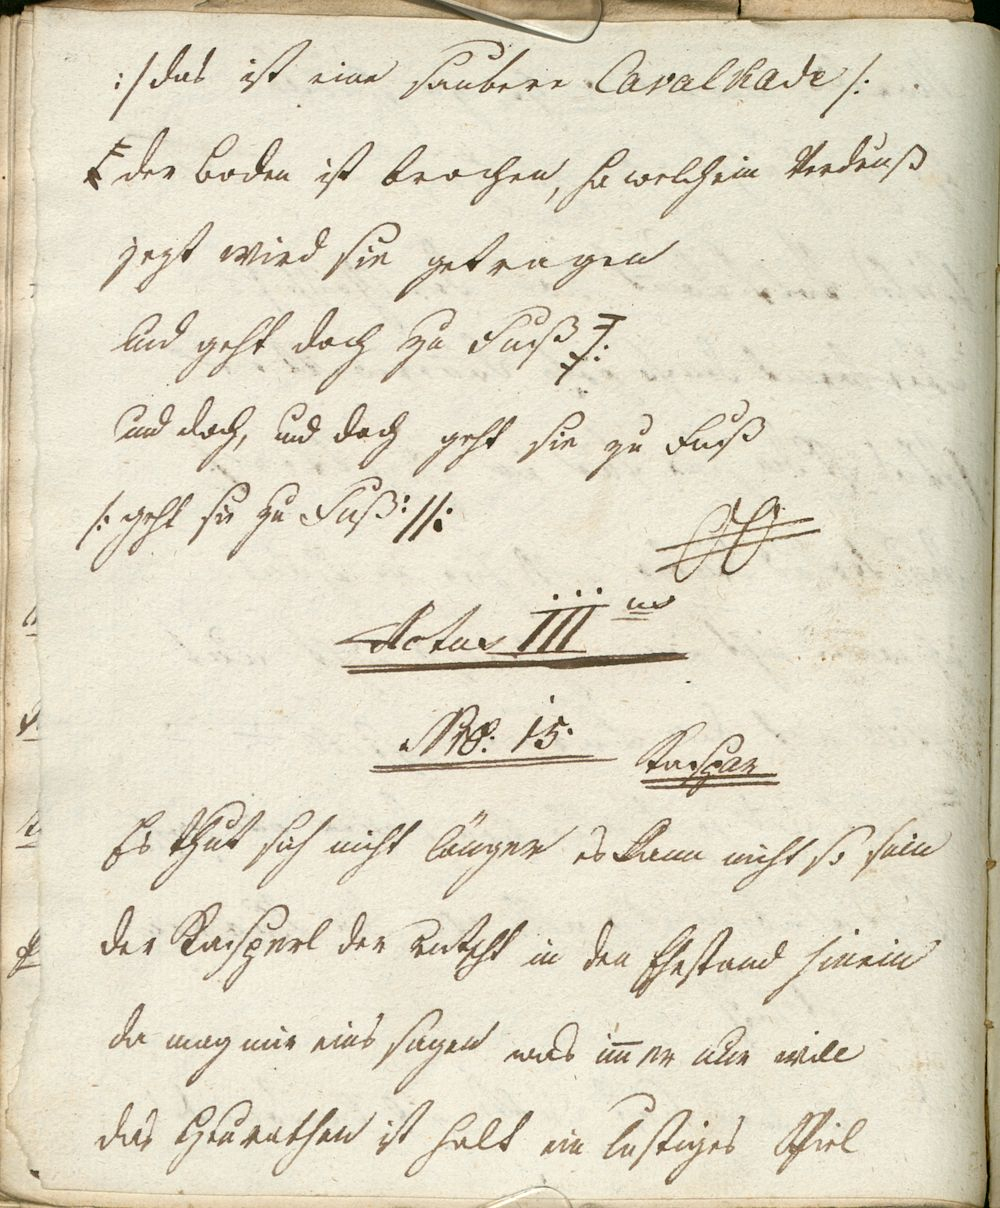 :/ das ist eine saubere Cavalkade /:
/: der Boden ist brochen, ha welch ein Verdruß
jezt wird sie getragen
und geht doch zu Fuß :/:
und doch, und doch geht sie zu Fuß
/: geht sie zu Fuß :/:
Actus III us
Nro: 15.
Kaspar
Es thut sich nicht länger es kann nicht so sein
der Kasperl der rutscht in den Ehestand hinein
da mag mir eins sagen was im̅er nur will
das Heurathen ist halt ein lustiges Spiel